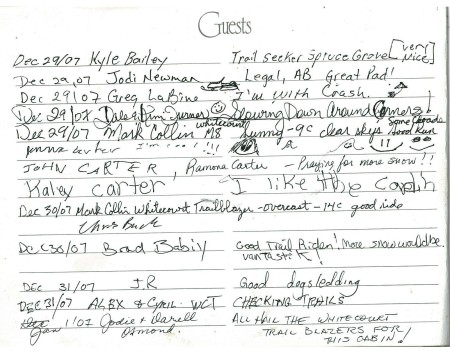 Guests
Dec 29/07 Kyle Bailey Trail Seeker Spruce Grove [very nice]
Dec 29,07 Jodi Newman Legal, AB Great Pad!
Dec 29/07 Greg LaBine I'm with Crash.
Dec 29/07 Dale & Pim Turner Slowing Down Around Corners!
Dec 29/07 Mark Collin M8 Whitecourt Sunny -9c clear skys Good Run
JOHN CARTER, Ramona Carter - Praying for more snow!!
Kaley carter I like the Cabin
Dec 30/07 Mark Collin Whitecourt Trailblazer - overcast -14c good ride
Chris
Dec 30/07 Brad Babiy Good Trail Riden! More snow would be vantastik!
DEC 31/07 J.R Good dogsledding
DEC 31/07 ALEX & Cyril WCT CHECKING TRAILS
Jan 1/07 Jodie + Darrell Osmond ALL HAIL THE WHITECOURT
TRAIL BLAZERS FOR
THIS CABIN!